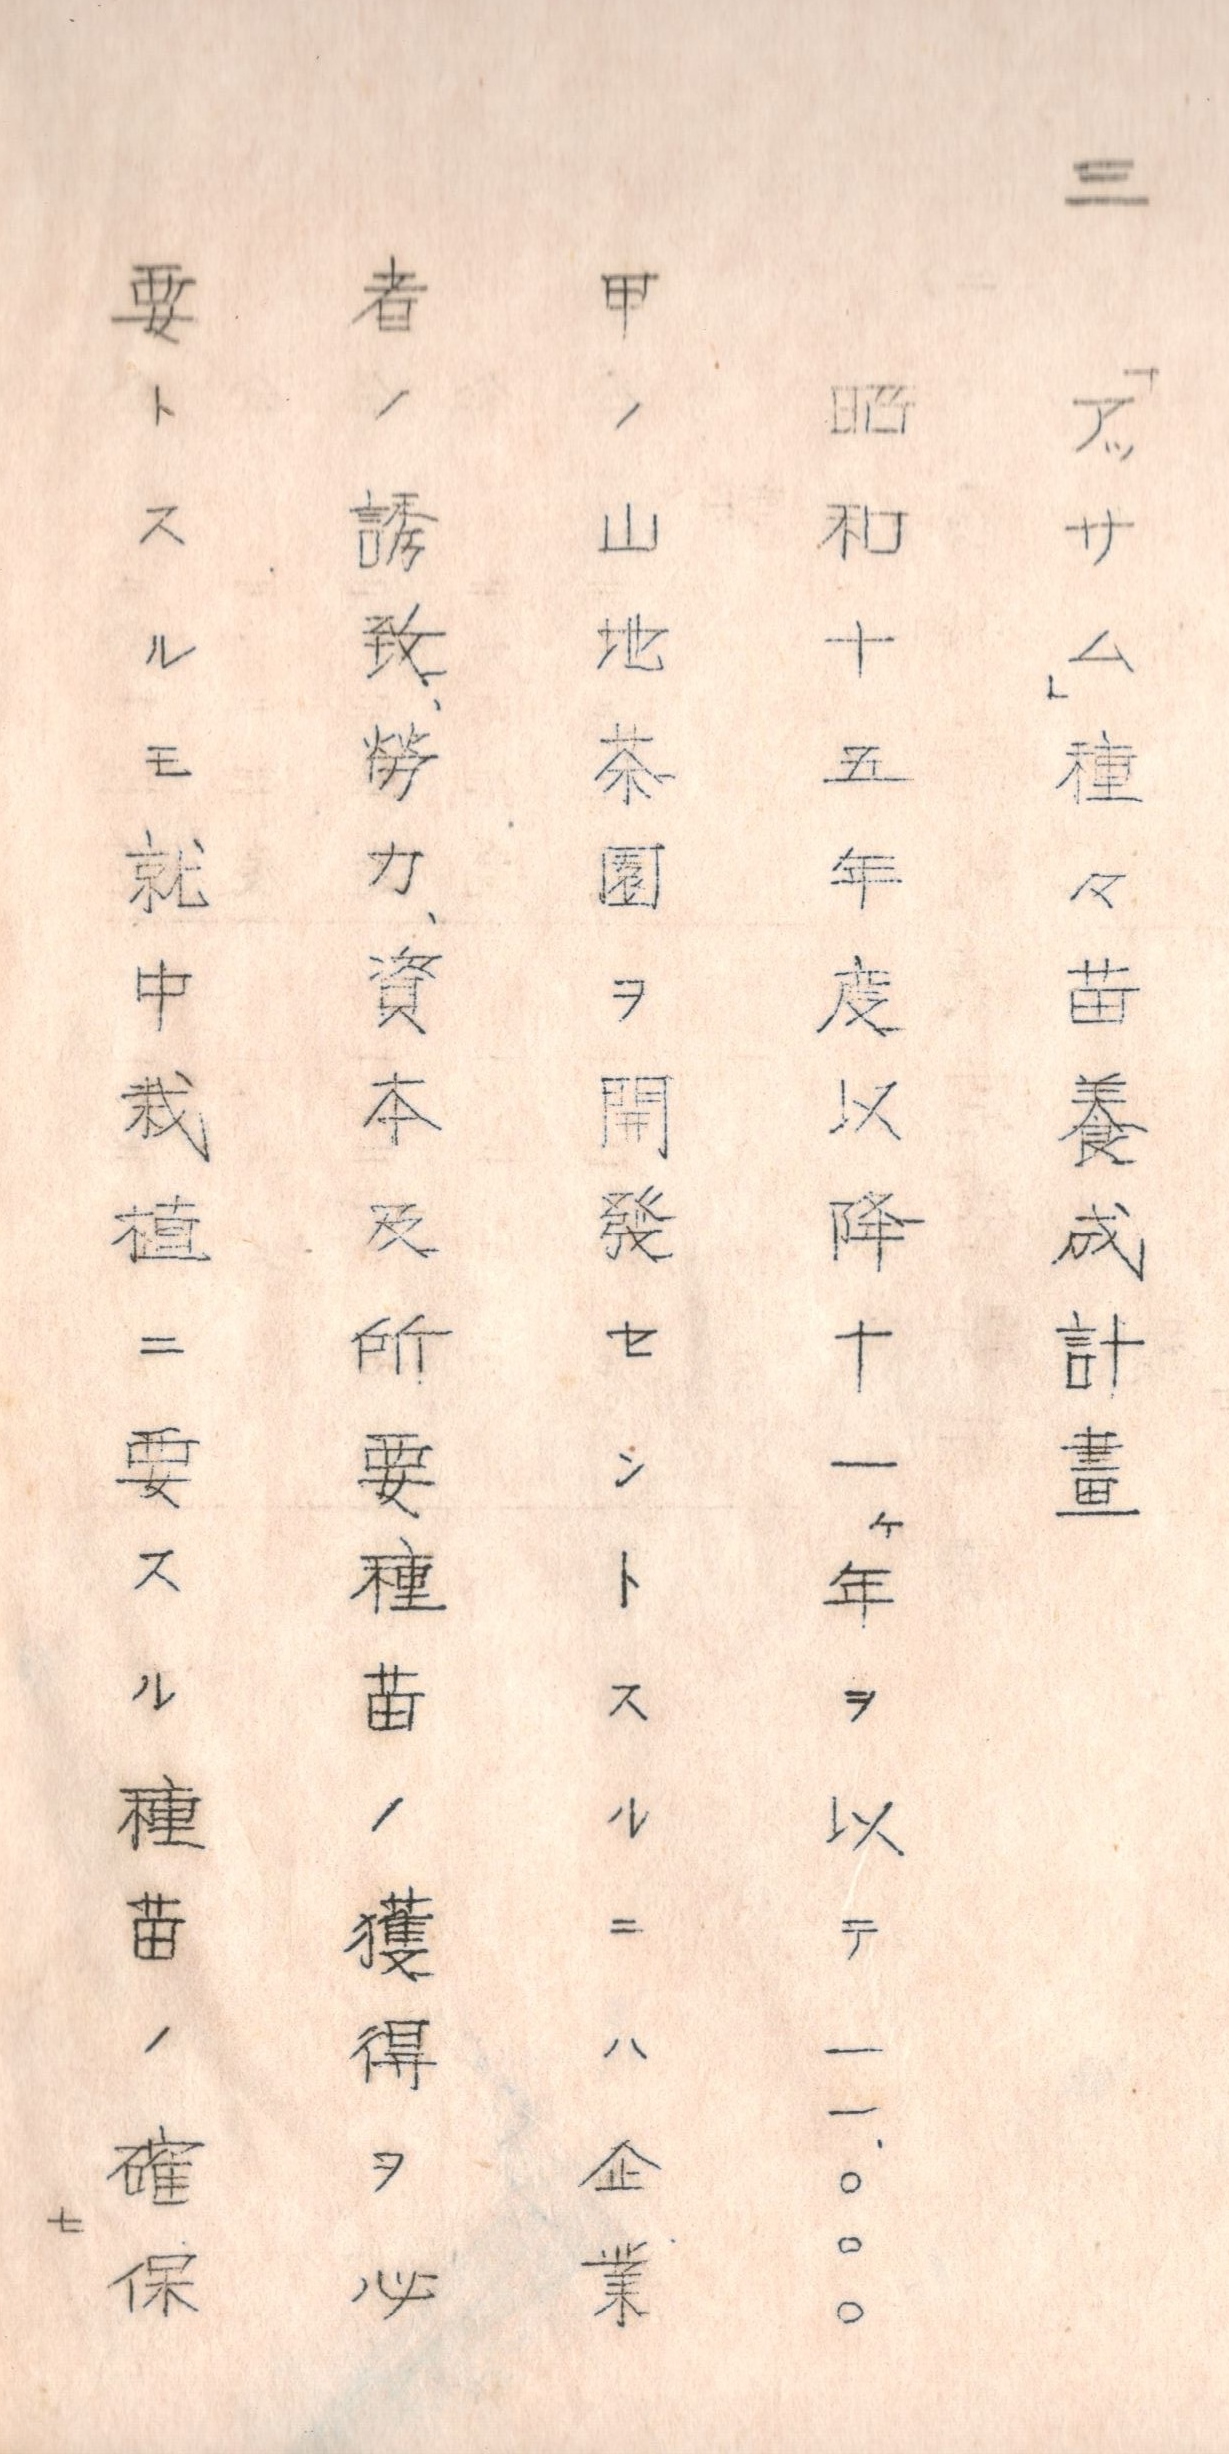 三 「アッサム」種々苗養成計畫
昭和十五年度以降十一ヶ年ヲ以テ一一、〇〇〇
甲ノ山地茶園ヲ開發セシトスルニハ企業
者ノ誘致、勞力、資本及所要種苗ノ獲得ヲ必
要トスルモ就中栽植ニ要スル種苗ノ確保
七